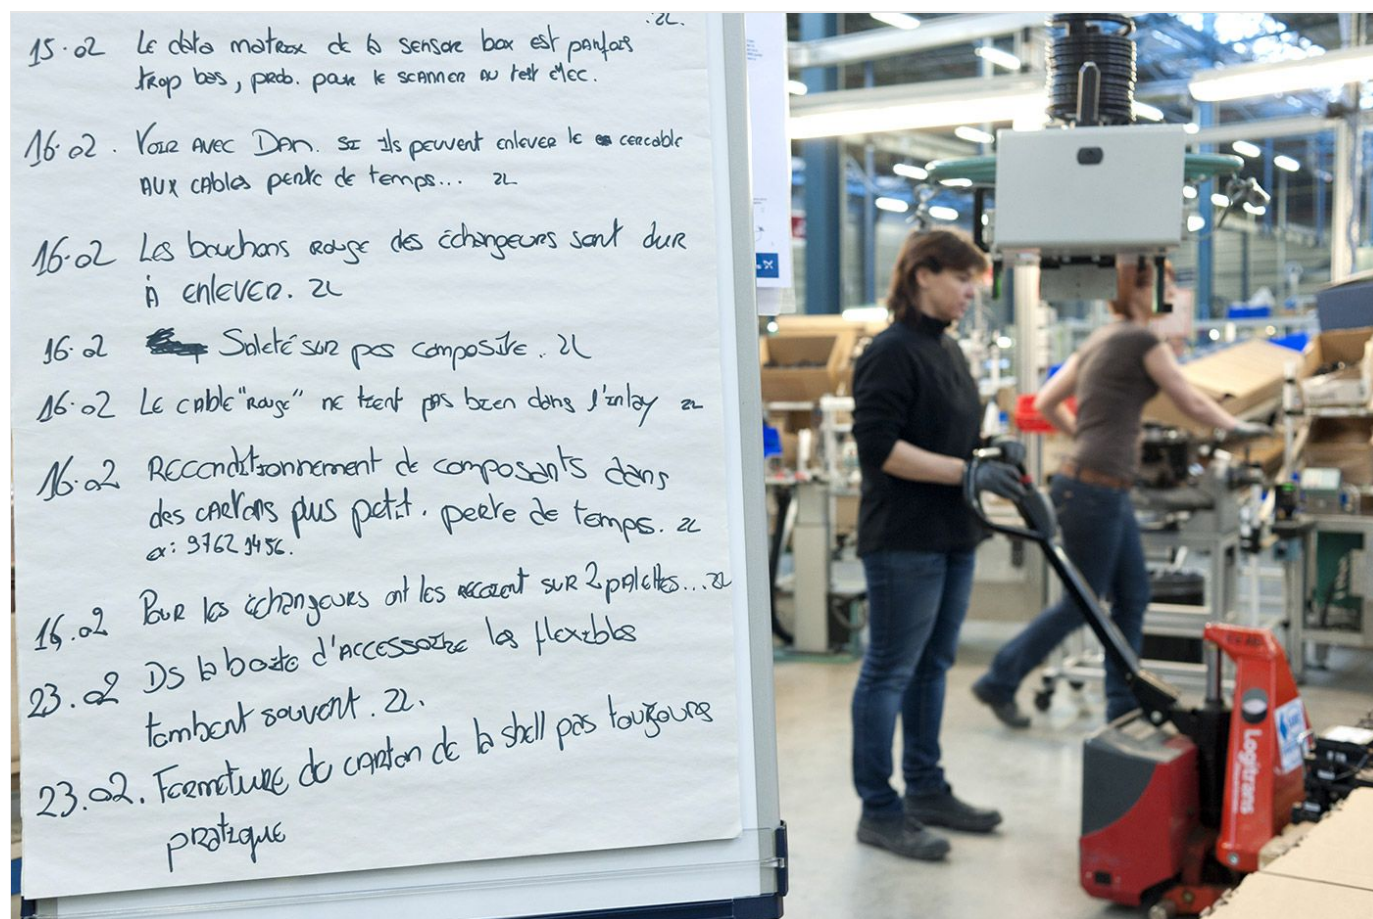 ZL.
15.02 Le data matrox de la sensore box est parfois
trop bas, prob. pour le scanner au test elec.
16.02. Voir avec Dan. si ils peuvent enlever le cercable
aux cables perte de temps... ZL
16.02 Les bouchons rouge des échangeurs sont dur
à enlever. ZL
16.02 Saleté sur pcs composite. ZL
16.02 Le cable "rouge" ne tient pas bien dans l'inlay ZL
16.02 Reconditionnement de composants dans
des cartons plus petit. perte de temps. ZL
ex: 97621456.
16.02 Pour les échangeurs ont les recoient sur 2 palettes... ZL
23.02 Ds la boite d'accessoire les flexibles
tombent souvent. ZL.
23.02. Fermeture du carton de la shell pas toujours
pratique
Logitrans